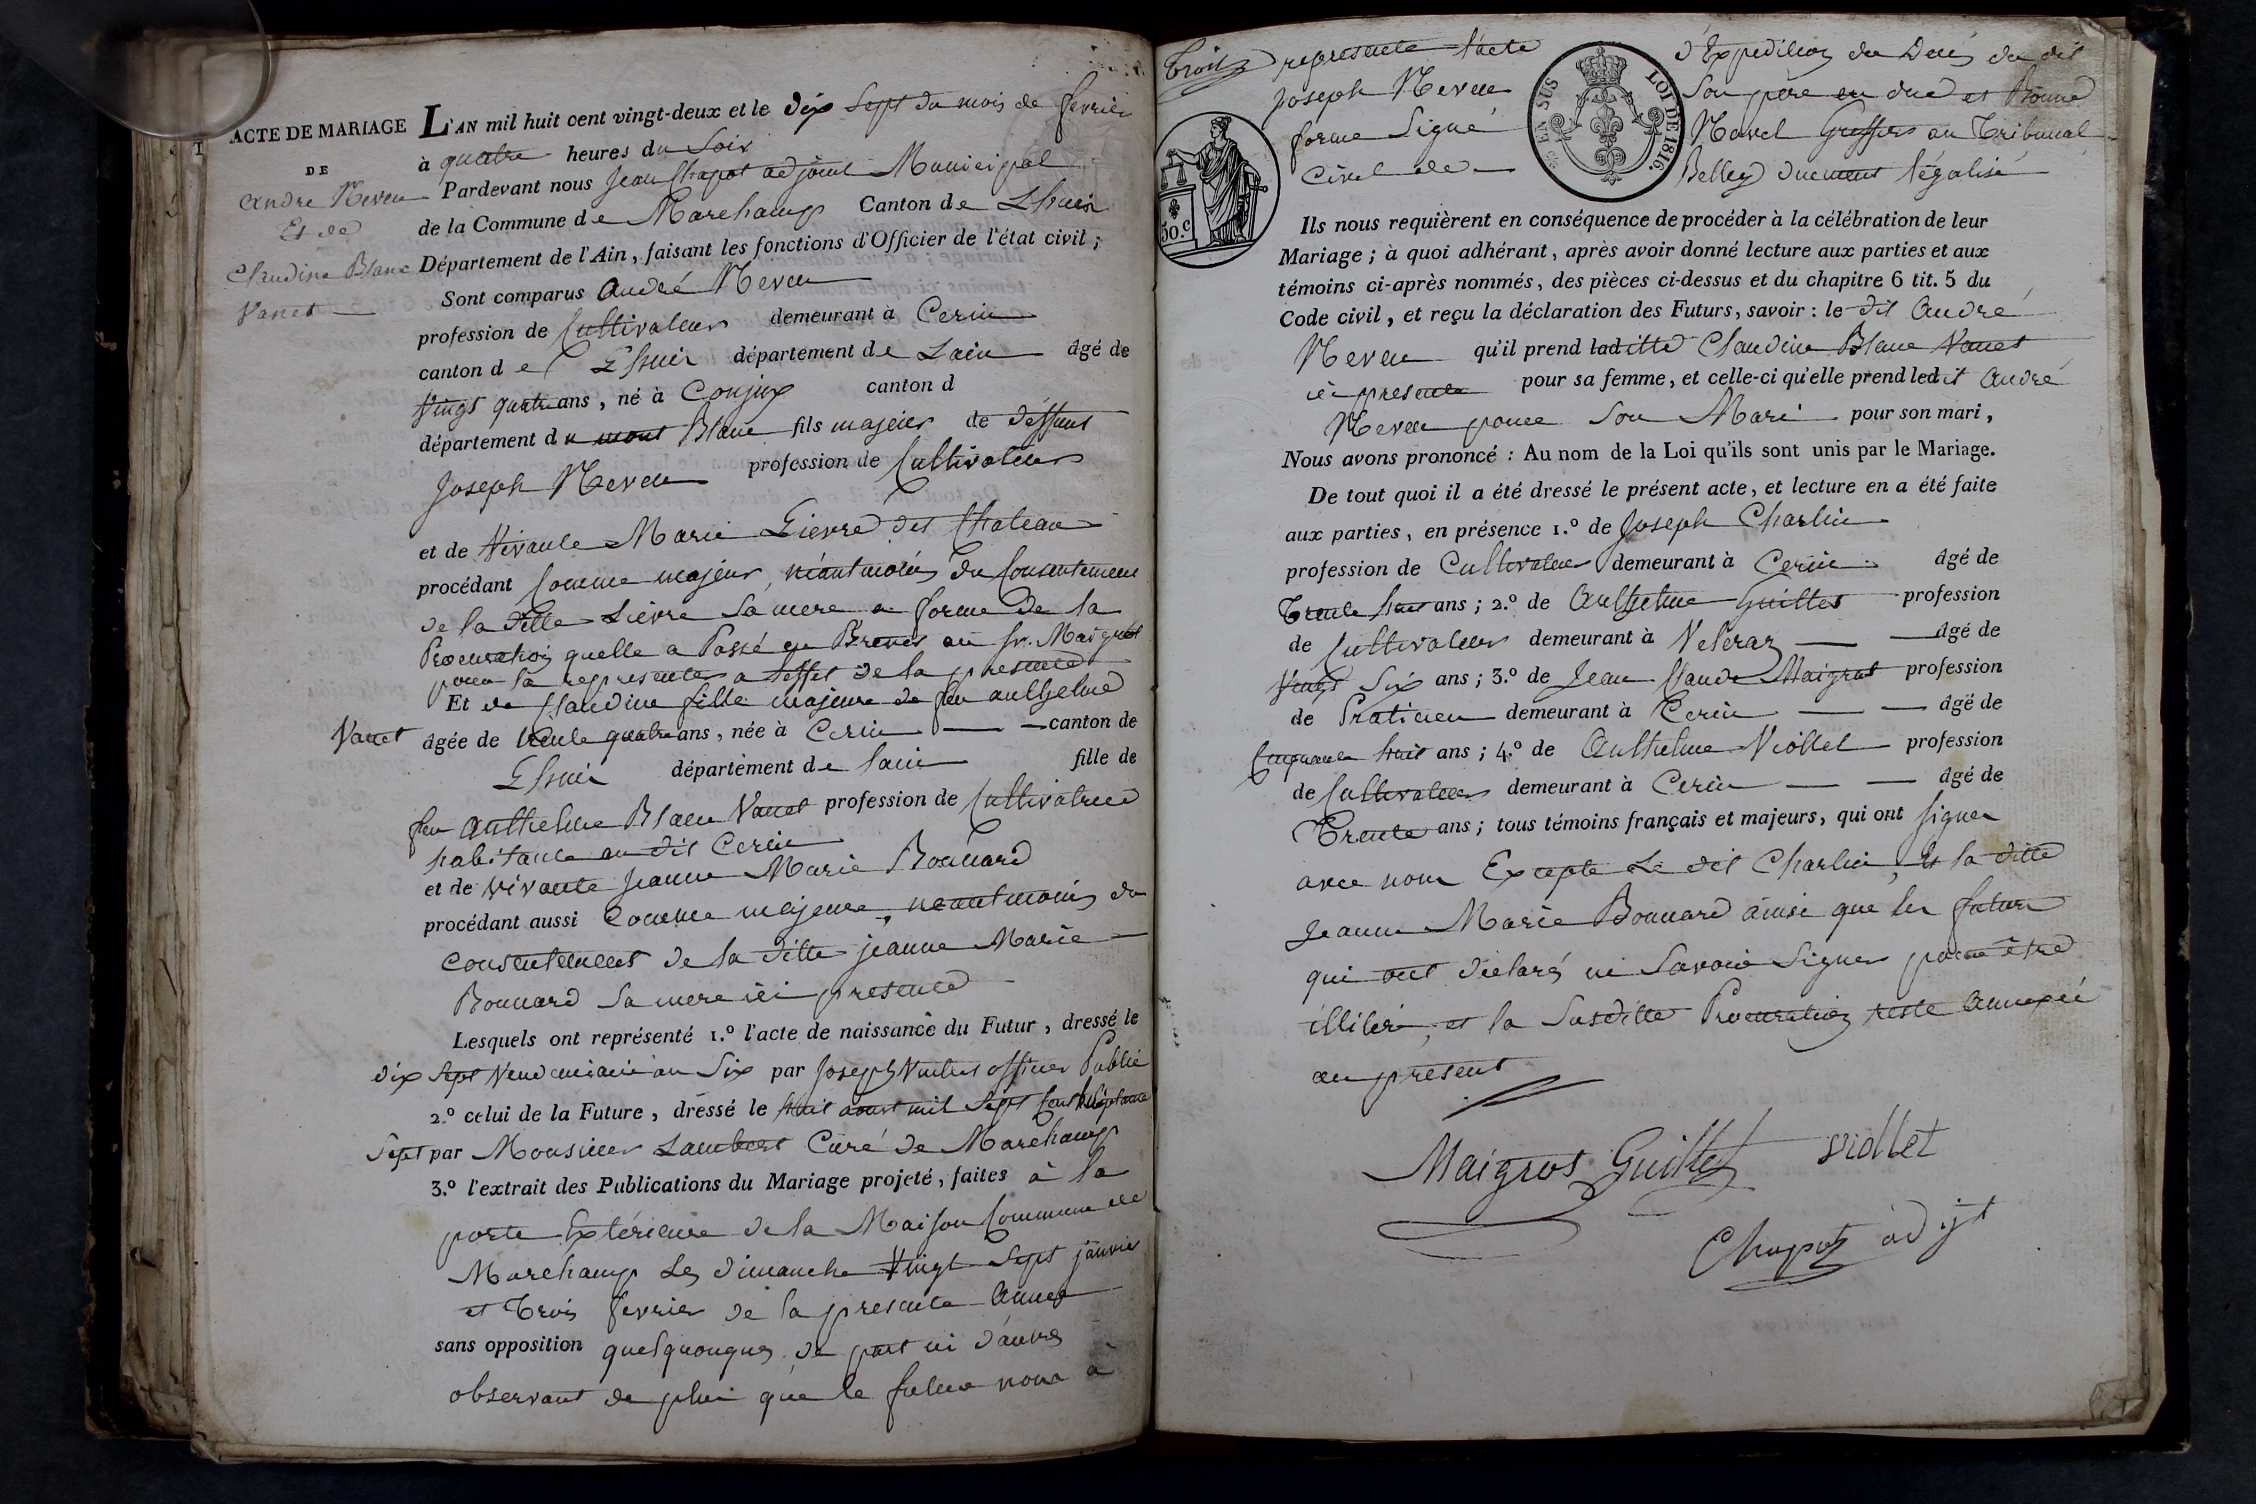 ACTE DE MARIAGE
DE
andré Neveu
Et de
Claudine Blanc
Vanet
L'AN mil huit cent vingt-deux et le dix Sept du mois de fevrier
à quatre heures du Soir
Pardevant nous Jean Chapot adjoint Municipal
de la Commune de Marchamp Canton de Lhuis
Département de l'Ain, faisant les fonctions d'Officier de l'état civil;
Sont comparus André Neveu
profession de Cultivateur demeurant à Cerin
canton de Lhuis département de Lain âgé de
Vingt quatre ans, né à Conjux canton d
département du mont Blanc fils majeur de déffunt
Joseph Neveu profession de Cultivateur
et de Vivante Marie Lievre des Chateau
procédant Comme majeur, néantmoins du Consentement
de la ditte Lièvre Sa mere a forme de la
Procuration quelle a Passé en Brevet au sr. Maigrot
pour la representer a leffet de la presente
Et de Claudine fille majeure de feu anthelme
Vanet âgée de trente quatre ans, née à Cerin canton de
Lhuis département de lain fille de
feu anthelme Blanc Vanet profession de Cultivatrice
habitante au dit Cerin
et de vivante Jeanne Marie Bonnard
procédant aussi Comme majeure, neantmoins du
consentement de la ditte jeanne Marie
Bonnard Sa mere ici presente
Lesquels ont représenté 1.º l'acte de naissance du Futur, dressé le
dix Sept Vendemiaire an Six par Joseph officier Public
2.º celui de la Future, dressé le huit aoust mil Sept Cent huiptante
Sept par Monsieur Lambert Curé de Marchamp
3.º l'extrait des Publications du Mariage projeté, faites à la
porte Extérieure de la Maison Commune de
Marchamp Les dimanche Vingt Sept janvier
et Trois fevrier de la presente année
sans opposition quelquonques de part ni d'autres
observant de plus que le futur nous a
Droit representé l'acte d'Expedition du Decés du dit
Joseph Neveu Son père en due et Bonne
forme Signé Navel Greffier au Tribunal
Civil de Belley duement légalisé
TIMBRE EN SUS LOI DE 1816.
50.c
Ils nous requièrent en conséquence de procéder à la célébration de leur
Mariage; à quoi adhérant, après avoir donné lecture aux parties et aux
témoins ci-après nommés, des pièces ci-dessus et du chapitre 6 tit. 5 du
Code civil, et reçu la déclaration des Futurs, savoir: le dit André
Neveu qu'il prend laditte Claudine Blanc Vanet
ici presente pour sa femme, et celle-ci qu'elle prend ledit André
Neveu pour Son Mari pour son mari,
Nous avons prononcé: Au nom de la Loi qu'ils sont unis par le Mariage.
De tout quoi il a été dressé le présent acte, et lecture en a été faite
aux parties, en présence 1.º de Joseph Charlin
profession de Cultivateur demeurant à Cerin âgé de
Trente huit ans; 2.º de Anthelme Guillet profession
de Cultivateur demeurant à Veleraz âgé de
Vingt Six ans; 3.º de Jean Claude Maigrot profession
de Praticien demeurant à Cerin âgé de
Cinquante huit ans; 4.º de Anthelme Viollet profession
de Cultivateur demeurant à Cerin âgé de
Trente ans; tous témoins français et majeurs, qui ont Signer
avec nous Excepte Le dit Charlin, Et la ditte
Jeanne Marie Bonnard ainsi que les futurs
qui ont déclarés ni Savoir Signer pour être
illiteré, et la Susditte Procuration reste annexée
au present
Maigrot Guillet viollet
Chapot adjt